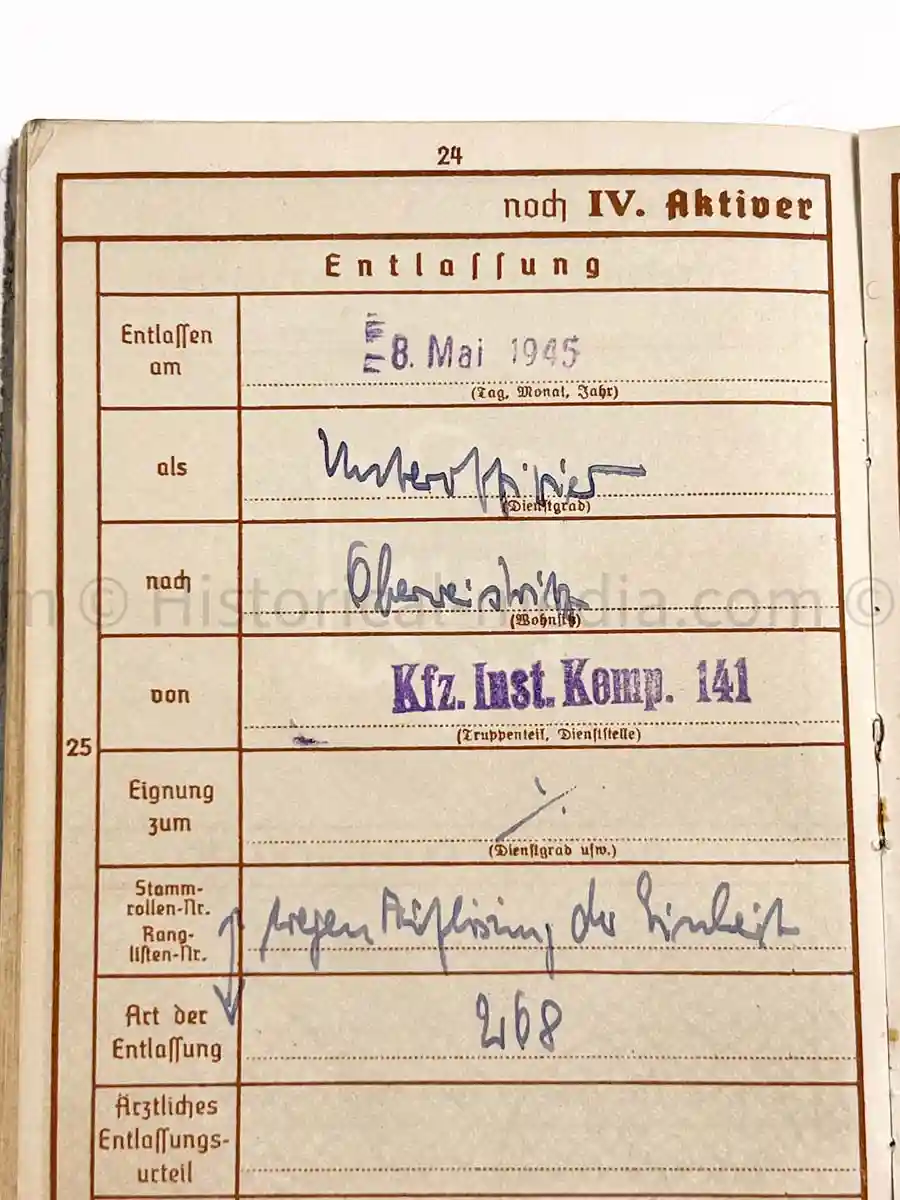 24
noch IV. Aktiver
Entlassung
Entlassen am
8. Mai 1945
(Tag, Monat, Jahr)
als
Unteroffizier
(Dienstgrad)
nach
(Wohnsitz)
von
Kfz. Inst. Komp. 141
(Truppenteil, Dienststelle)
25
Eignung zum
(Dienstgrad usw.)
Stamm-
rollen-Nr.
Rang-
listen-Nr.
wegen Auflösung der Einheit
Art der
Entlassung
268
Ärztliches
Entlassungs-
urteil
© Historical-media.com ©